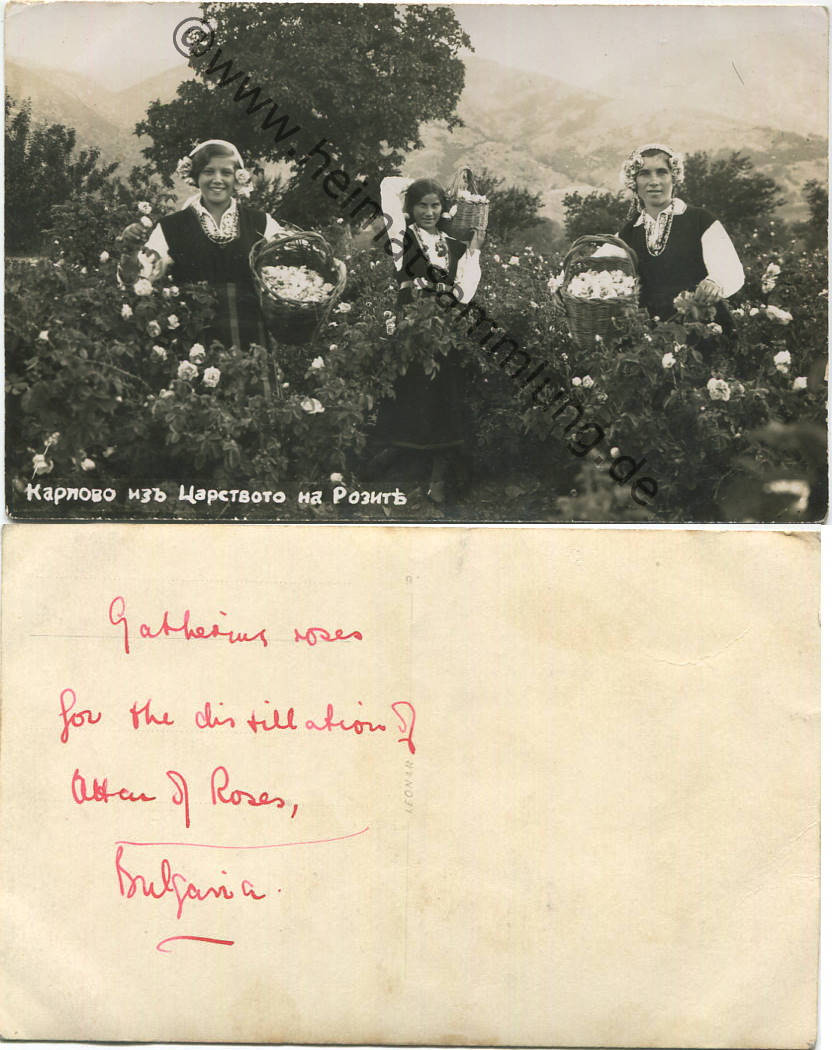 © www.heimatsammlung.de
Карлово изъ Царството на Розитѣ
Gathering roses
for the distillation of
Attar of Roses,
Bulgaria.
LEONAR